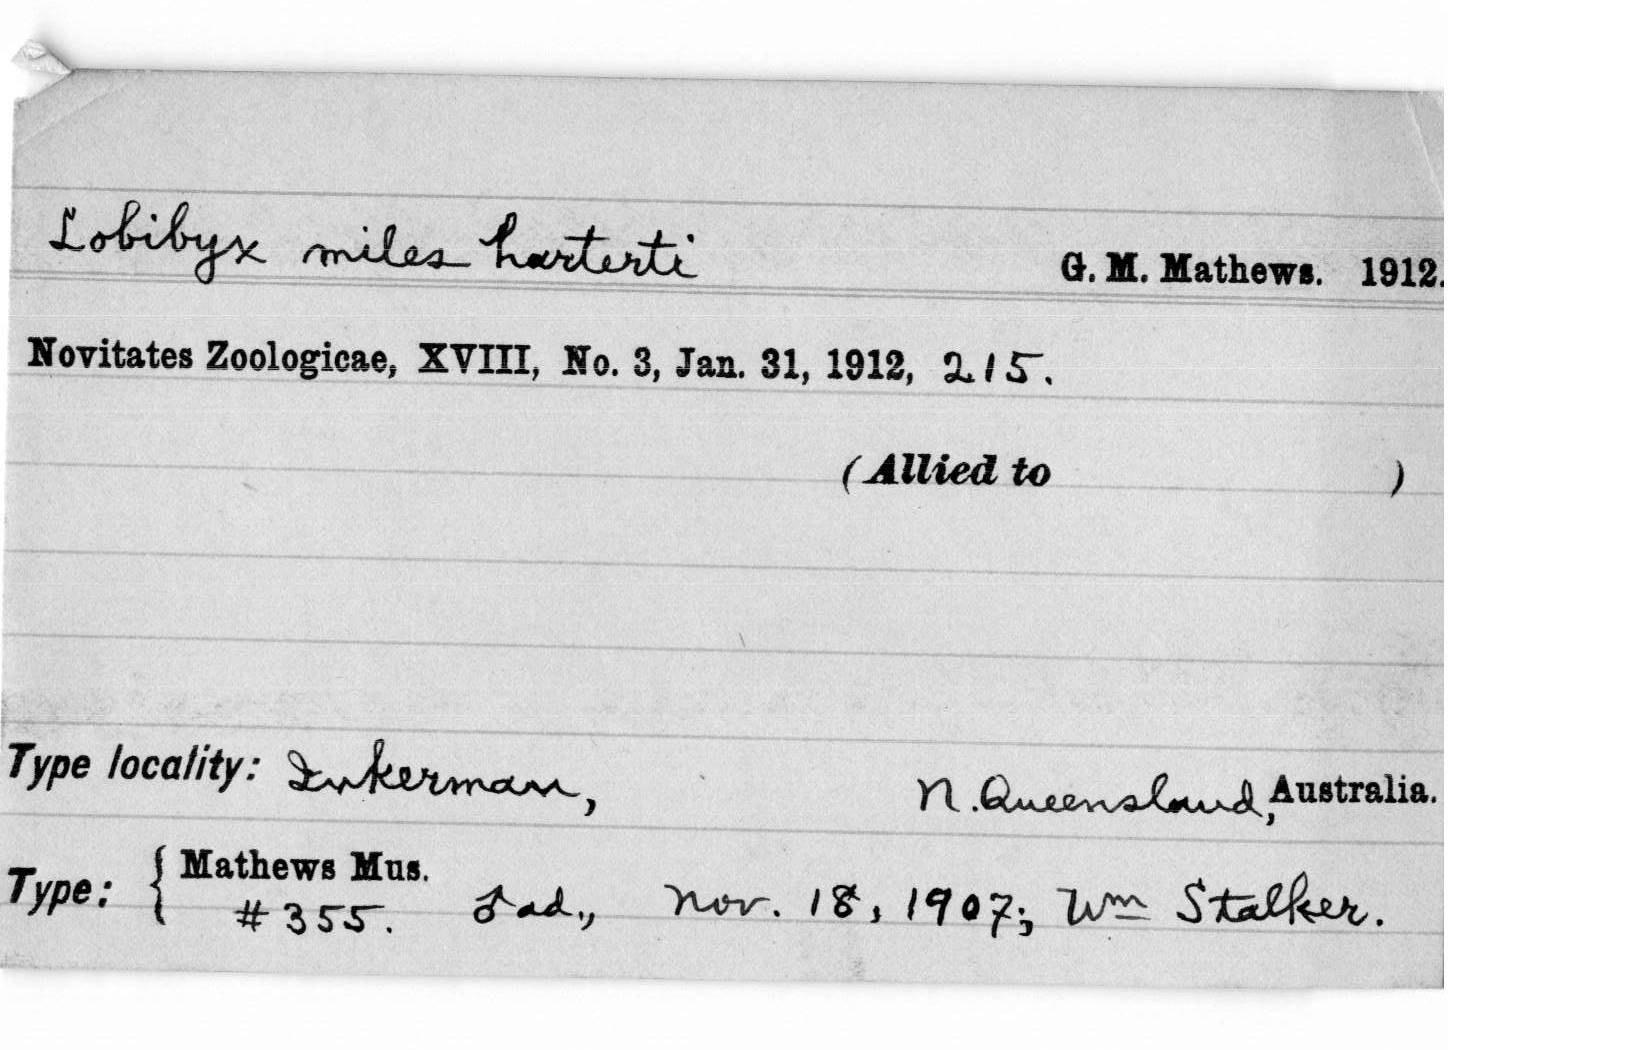 Lobibyx miles harterti G. M. Mathews. 1912.
Novitates Zoologicae, XVIII, No. 3, Jan. 31, 1912, 215.
(Allied to )
Type locality: Inkerman, N. Queensland, Australia.
Type: { Mathews Mus.
#355. ♂ ad., Nov. 18, 1907; Wm Stalker.